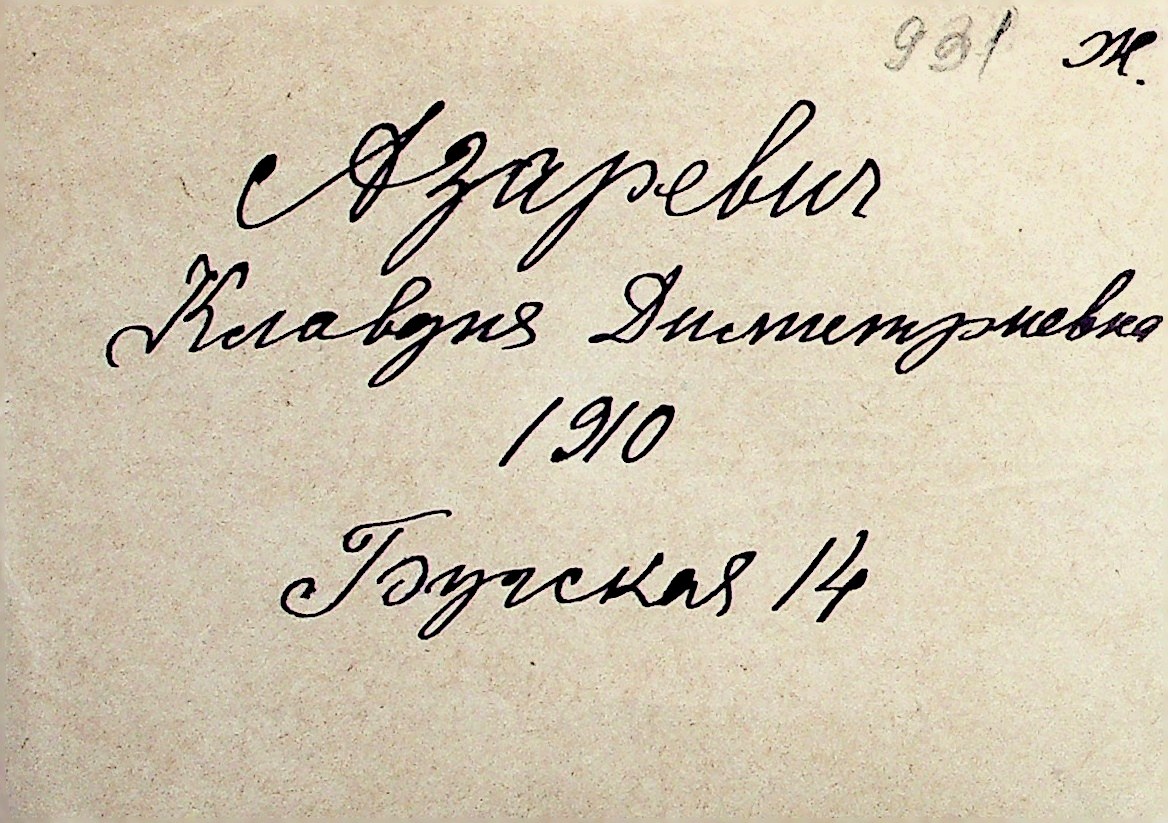 931 ж.
Азаревич
Клавдия Димитриевна
1910
Бугская 14